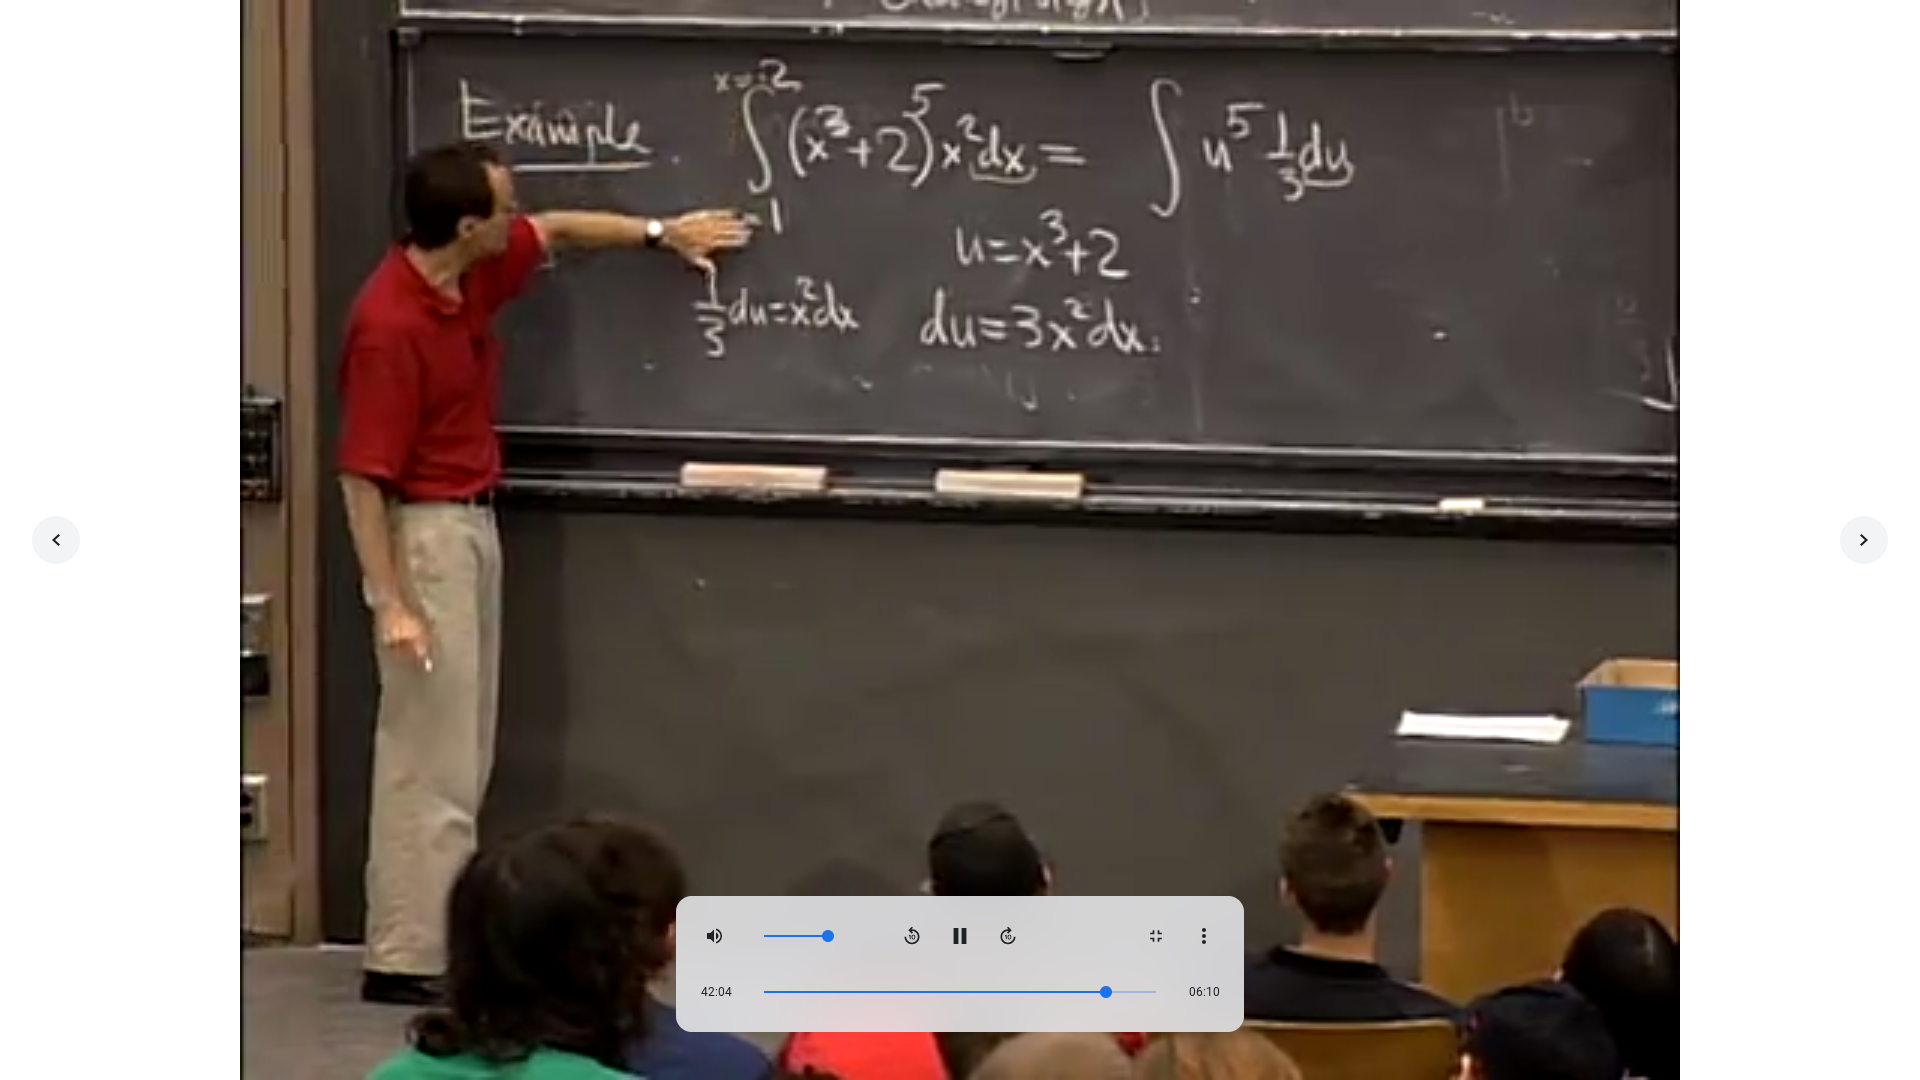 Example. ∫_{x=1}^{x=2} (x³+2)⁵ x² dx = ∫ u⁵ 1/3 du
u = x³+2
1/3 du = x² dx
du = 3x² dx.
42:04
06:10